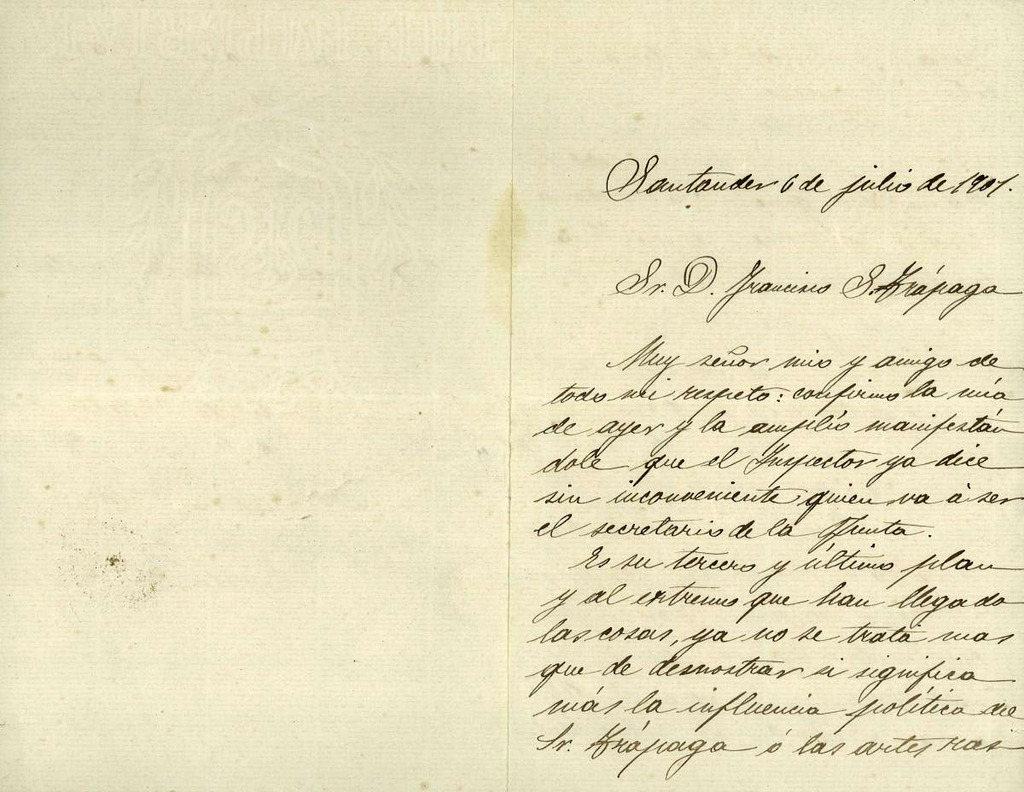 Santander 6 de julio de 1901.
Sr. D. Francisco S. Trápaga
Muy señor mio y amigo de
todo mi respeto: confirmo la mia
de ayer y la amplío manifestán
dole que el Inspector ya dice
sin inconveniente quien va á ser
el secretario de la Junta.
Es su tercero y último plan
y al extremo que han llegado
las cosas, ya no se trata mas
que de demostrar si significa
más la influencia política de
Sr. Trápaga ó las arteras